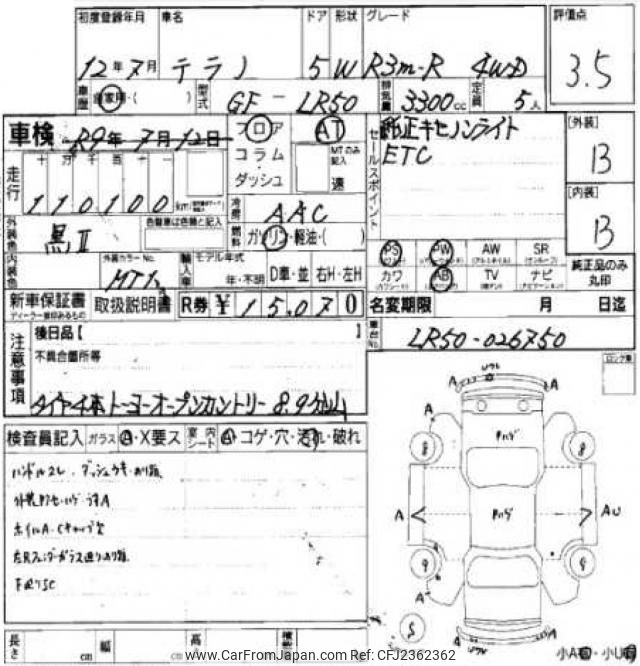 初度登録年月 車名 ドア 形状 グレード 評価点
12年7月 テラノ 5 W R3m-R 4WD 3.5
車歴 自家用・( ) 型式 GF-LR50 排気量 3300cc 定員 5人
車検 R9年7月12日 フロア AT 純正キセノンライト [外装]
コラム MTのみ記入 ETC B
ダッシュ 速 セールスポイント
走行 十 万 千 百 十 一 [内装]
110100 km 冷房 AAC B
外装色 黒II 色替車は色替と記入 燃料 ガソリン・軽油・( )
PS PW AW SR 純正品のみ丸印
内装色 外装カラーNo. 輸入車 モデル年式 カワ AB TV ナビ
年・不明 D車・並 右H・左H
新車保証書 取扱説明書 R券 ¥15,070 名変期限 月 日迄
ディーラー捺印あるもの
注意事項 後日品【 】 車台No. LR50-026750
不具合箇所等 ロング車
タイヤ4本トーヨーオープンカントリー 8.9分山
検査員記入 ガラス A・X要ス 室内シート A コゲ・穴・汚れ・破れ
ハンドルスレ・ダッシュ
ホイルA・Cキャップ欠
下廻りSC
A A
A A
8 8
A AU
9 9
A
S
長さ cm 幅 cm 高
小A・小U
www.CarFromJapan.com Ref: CFJ2362362